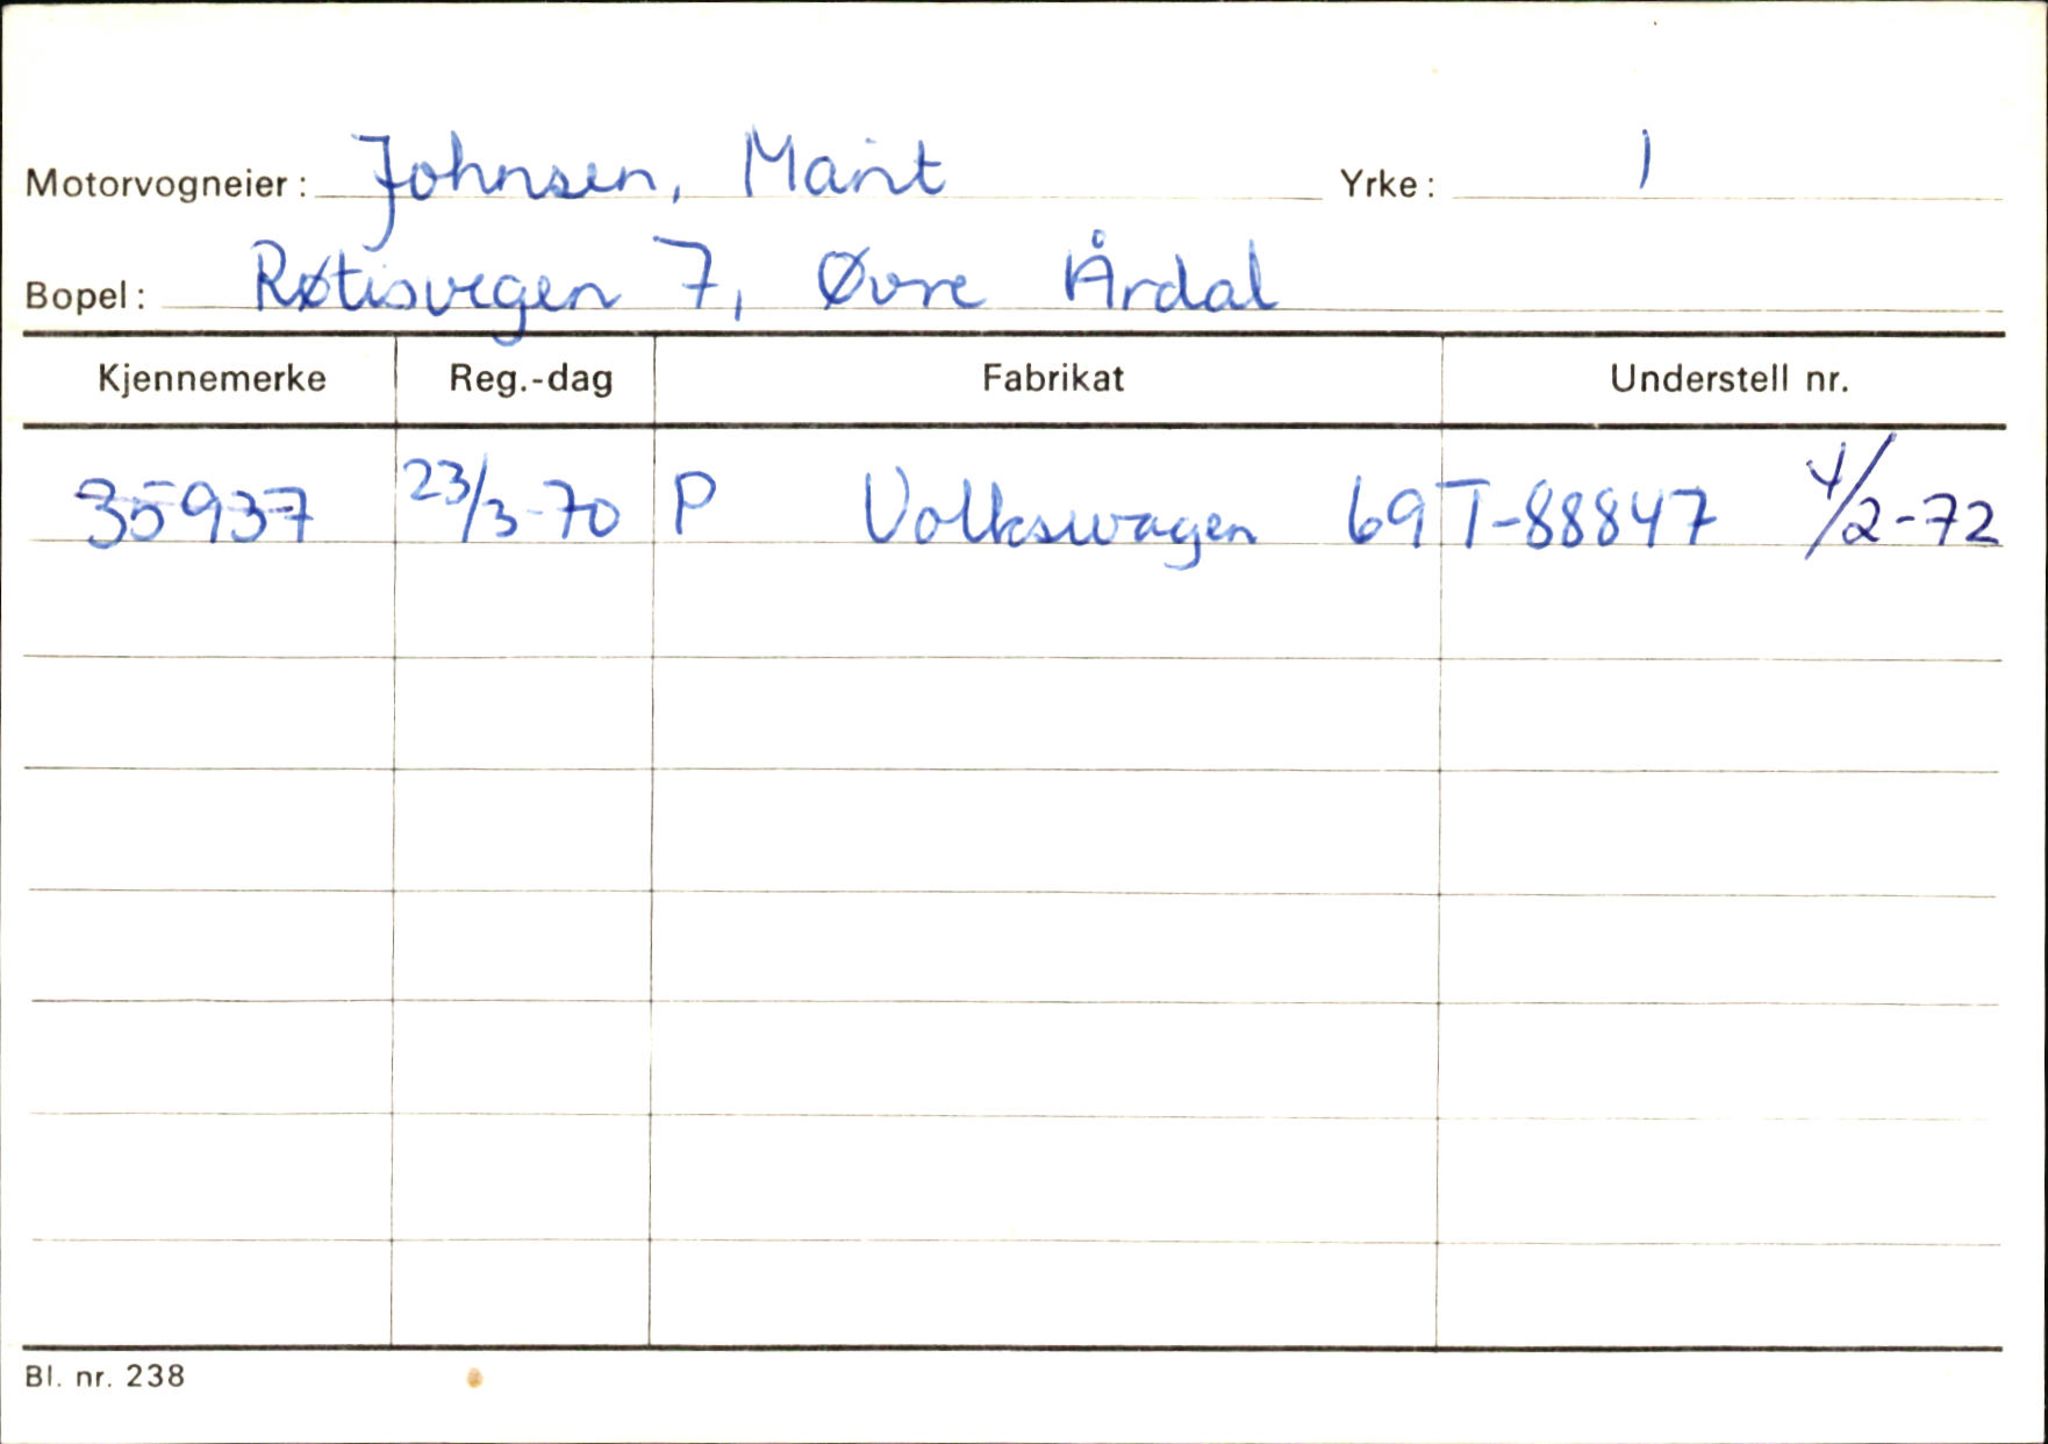 Motorvogneier: Johnsen, Marit Yrke: 1
Bopel: Røtisvegen 7, Øvre Årdal
Kjennemerke Reg.-dag Fabrikat Understell nr.
35937 23/3-70 P Volkswagen 69 T-88847 4/2-72
Bl. nr. 238